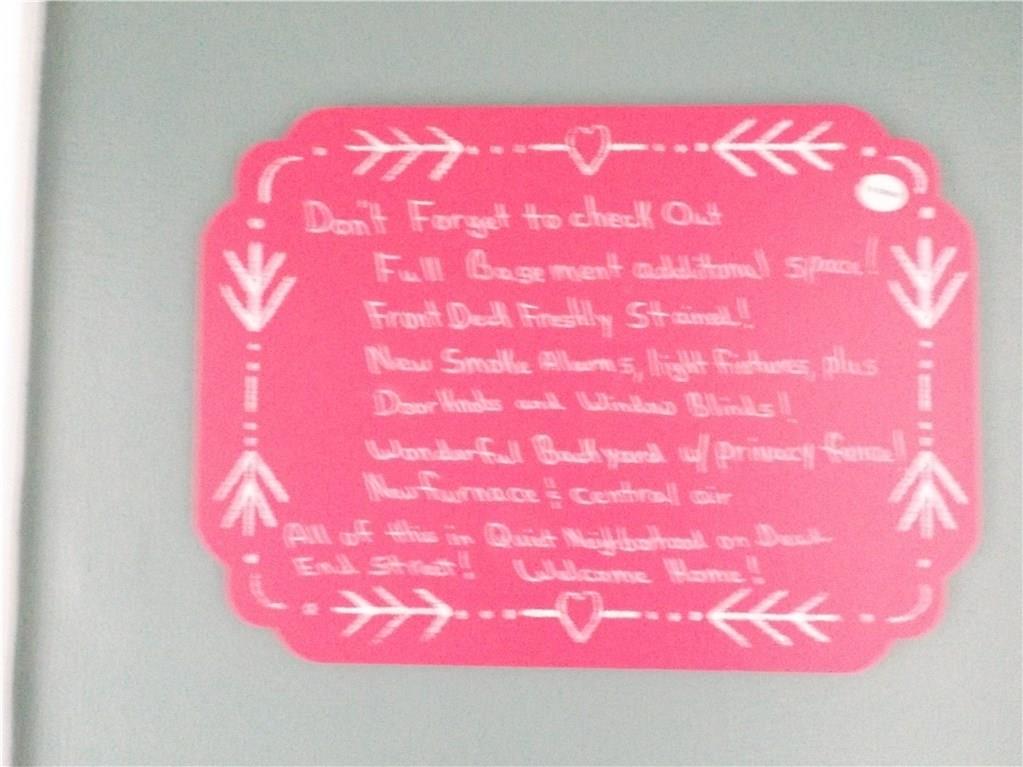 Don't Forget to check Out
Full Basement additional space!!
Front Deck Freshly Stained!!
New Smoke Alarms, light fixtures, plus
Door Knobs and Window Blinds!!
Wonderful Backyard w/ privacy fence!
New furnace & central air
All of this in Quiet Neighborhood on Dead
End Street!! Welcome Home!!